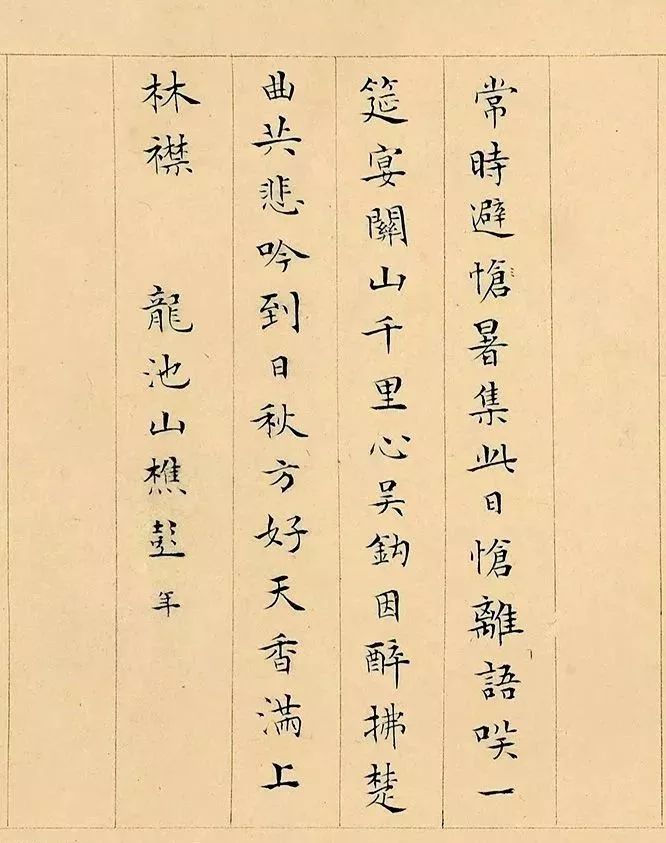 常時避愴暑集此日愴離語咲一
筵宴關山千里心吳鈎因醉拂楚
曲共悲吟到日秋方好天香滿上
林襟 龍池山樵彭年